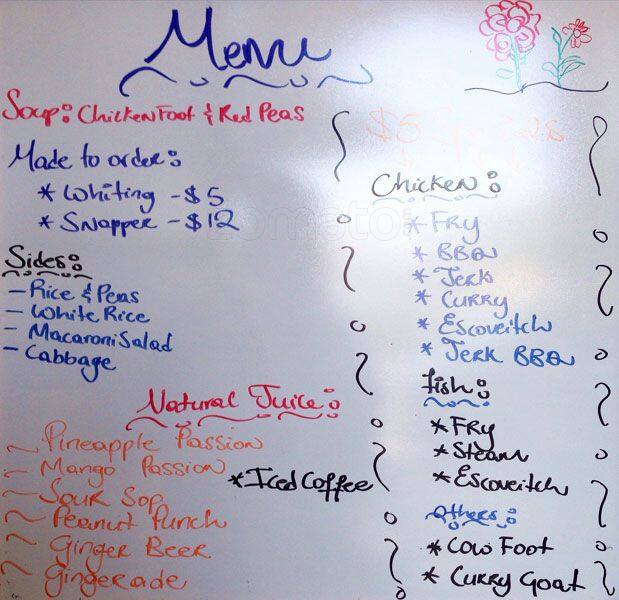 Menu
Soup: Chicken Foot & Red Peas
Made to order:
* Whiting - $5
* Snapper - $12
Sides:
- Rice & Peas
- White Rice
- Macaroni Salad
- Cabbage
Natural Juice:
~ Pineapple Passion
~ Mango Passion
~ Sour Sop
~ Peanut Punch
~ Ginger Beer
~ Gingerade
* Iced Coffee
$5
Chicken:
* Fry
* BBQ
* Jerk
* Curry
* Escoveitch
* Jerk BBQ
Fish:
* Fry
* Steam
* Escoveitch
Others:
* Cow Foot
* Curry Goat
zomato